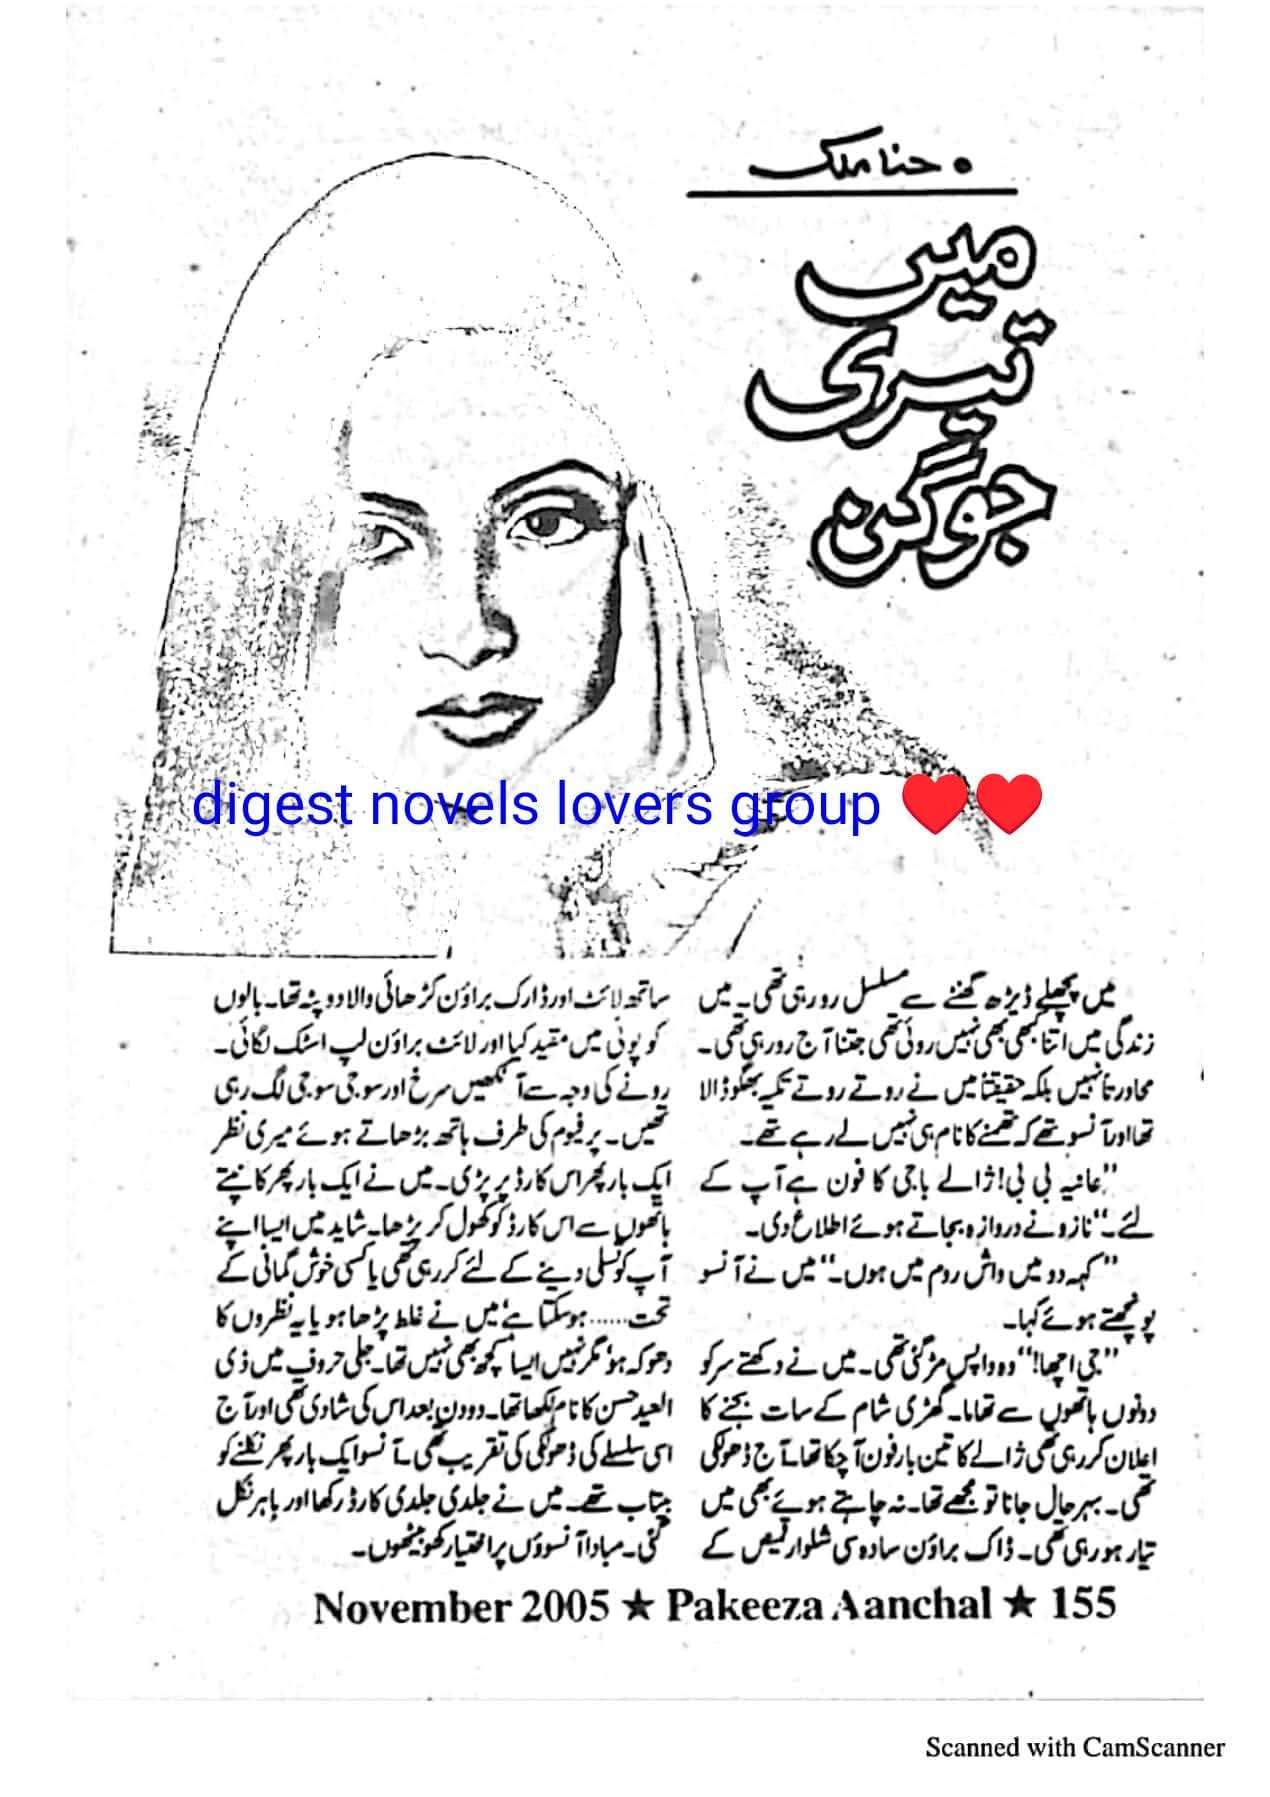 ○ حنا ملک
میں
تیری
جوگن
digest novels lovers group ❤❤
میں پچھلے ڈیڑھ گھنٹے سے مسلسل رو رہی تھی۔ میں
زندگی میں اتنا کبھی بھی نہیں روئی تھی جتنا آج رو رہی تھی۔
محاورتاً نہیں بلکہ حقیقتاً میں نے روتے روتے تکیہ بھگو ڈالا
تھا اور آنسو تھے کہ تھمنے کا نام ہی نہیں لے رہے تھے۔
”عافیہ بی بی! ژالے باجی کا فون ہے آپ کے
لئے۔“ نازو نے دروازہ بجاتے ہوئے اطلاع دی۔
”کہہ دو میں واش روم میں ہوں۔“ میں نے آنسو
پونچھتے ہوئے کہا۔
”جی اچھا!“ وہ واپس مڑ گئی تھی۔ میں نے دکھتے سر کو
دونوں ہاتھوں سے تھاما۔ گھڑی شام کے سات بجنے کا
اعلان کر رہی تھی ژالے کا تین بار فون آ چکا تھا۔ آج ڈھولکی
تھی۔ بہر حال جانا تو مجھے تھا۔ نہ چاہتے ہوئے بھی میں
تیار ہو رہی تھی۔ ڈاک براؤن سادہ سی شلوار قمیص کے
ساتھ لائٹ اور ڈارک براؤن کڑھائی والا دوپٹہ تھا۔ بالوں
کو پونی میں مقید کیا اور لائٹ براؤن لپ اسٹک لگائی۔
رونے کی وجہ سے آنکھیں سرخ اور سوجی سوجی لگ رہی
تھیں۔ پرفیوم کی طرف ہاتھ بڑھاتے ہوئے میری نظر
ایک بار پھر اس کارڈ پر پڑی۔ میں نے ایک بار پھر کانپتے
ہاتھوں سے اس کارڈ کو کھول کر پڑھا۔ شاید میں ایسا اپنے
آپ کو تسلی دینے کے لئے کر رہی تھی یا کسی خوش گمانی کے
تحت...... ہو سکتا ہے‘ میں نے غلط پڑھا ہو یا یہ نظروں کا
دھوکہ ہو‘ مگر نہیں ایسا کچھ بھی نہیں تھا۔ جلی حروف میں ذی
العید حسن کا نام لکھا تھا۔ دو دن بعد اس کی شادی تھی اور آج
اسی سلسلے کی ڈھولکی کی تقریب تھی۔ آنسو ایک بار پھر نکلنے کو
بیتاب تھے۔ میں نے جلدی جلدی کارڈ رکھا اور باہر نکل
گئی۔ مبادا آنسوؤں پر اختیار کھو بیٹھوں۔
November 2005 ★ Pakeeza Aanchal ★ 155
Scanned with CamScanner